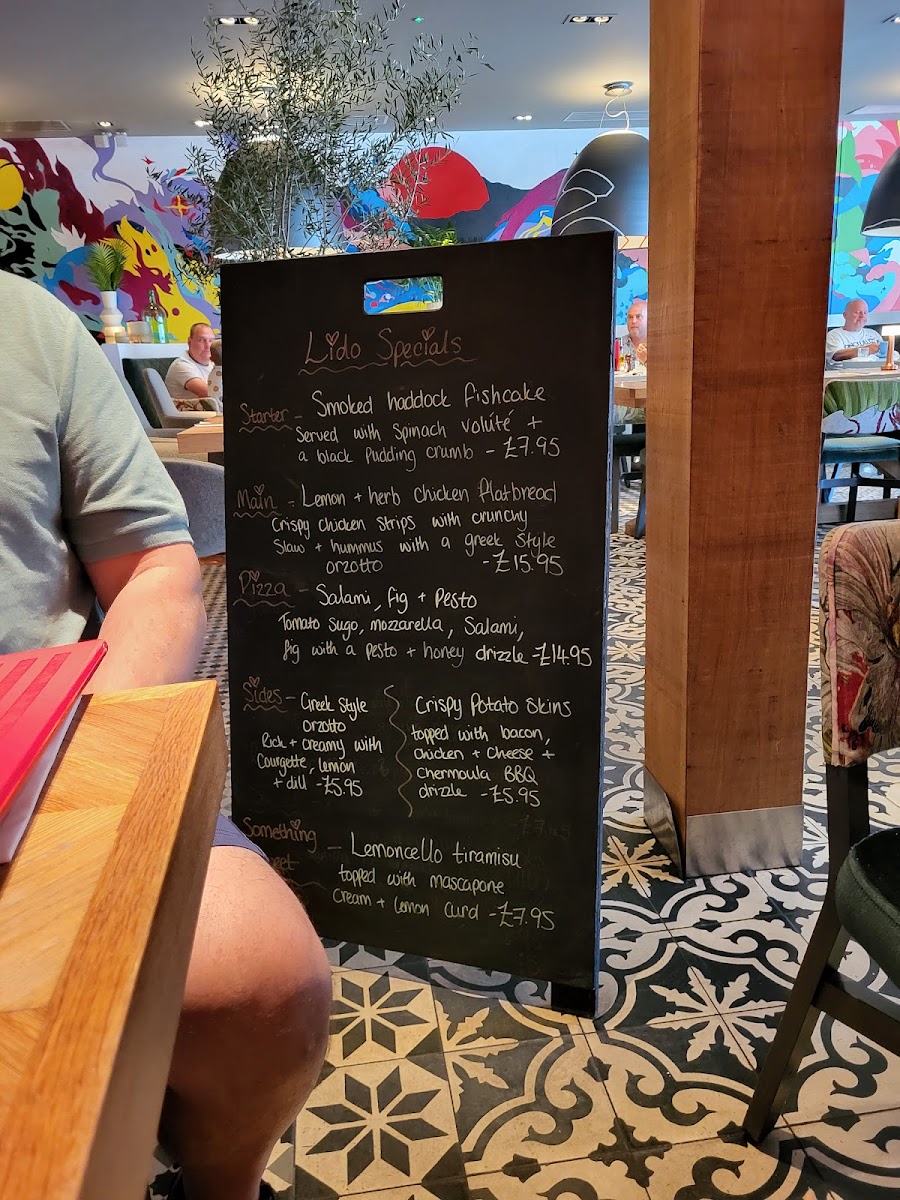 Lido Specials
Starter - Smoked haddock fishcake
Served with spinach volúté +
a black pudding crumb - £7.95
Main - Lemon + herb chicken flatbread
Crispy chicken strips with crunchy
Slaw + hummus with a greek style
orzotto - £15.95
Pizza - Salami, fig + Pesto
Tomato sugo, mozzarella, Salami,
fig with a pesto + honey drizzle - £14.95
Sides - Greek Style
orzotto
Rich + creamy with
Courgette, lemon
+ dill - £5.95
Crispy Potato Skins
topped with bacon,
chicken + cheese +
chermoula BBQ
drizzle - £5.95
Something
- Lemoncello tiramisu
topped with mascapone
cream + lemon curd - £7.95